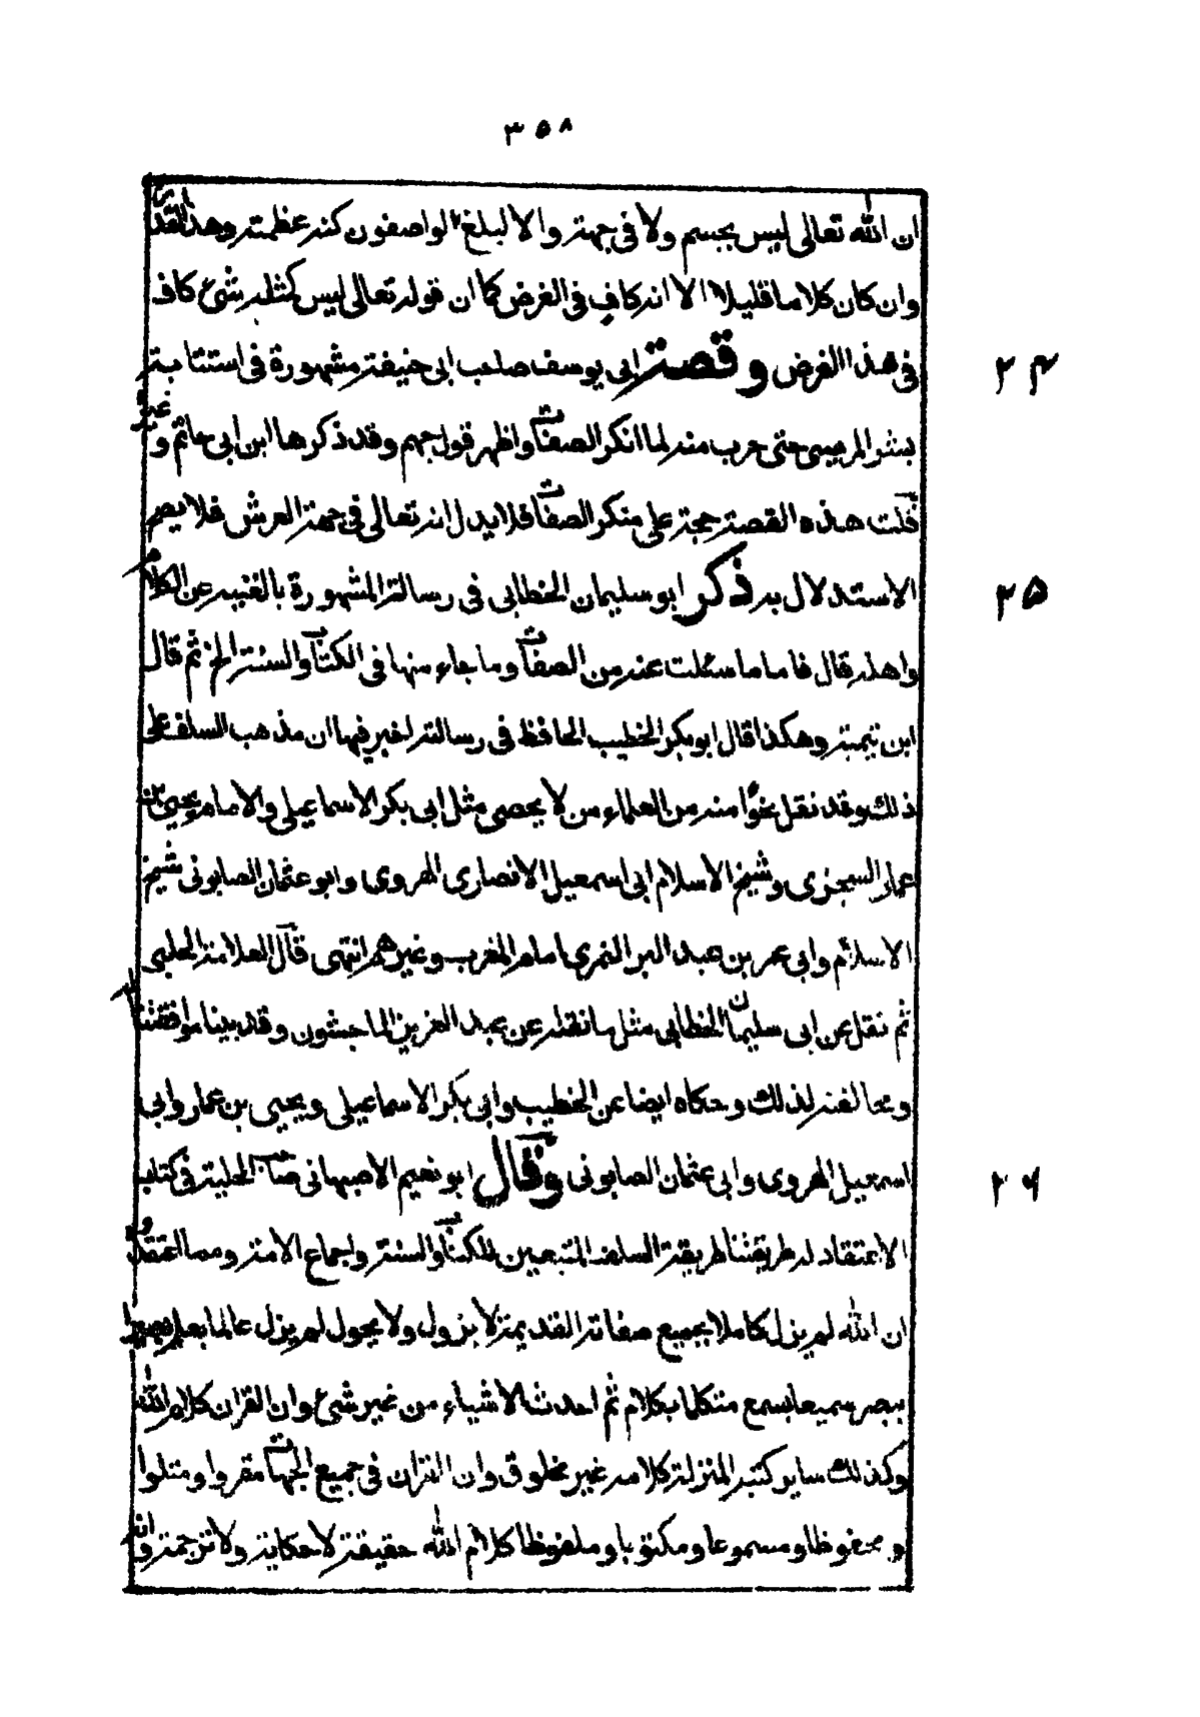 ۳۵۸
ان الله تعالى ليس بجسم ولا فى جهة والا لبلغ الواصفون كنه عظمته وهذا القدر
وان كان كلاما قليلا الا انه كاف فى الغرض كما ان قوله تعالى ليس كمثله شئ كاف
فى هذا الغرض وقصة ابى يوسف صاحب ابى حنيفة مشهورة فى استتابة
۲۴
بشر المريسى حتى هرب منه لما انكر الصفات واظهر قول جهم وقد ذكرها ابن ابى حاتم وغيره
قلت هذه القصة حجة على منكر الصفات فلا يدل انه تعالى فى جهة العرش فلا يصح
الاستدلال به ذكر ابو سليمان الخطابى فى رسالته المشهورة بالغنيه عن الكلام
۲۵
واهله قال فاما ما سئلت عنه من الصفات وما جاء منها فى الكتاب والسنة الخ ثم قال
ابن تيمية وهكذا قال ابو بكر الخطيب الحافظ فى رسالة اخبر فيها ان مذهب السلف على
ذلك وقد نقل نحوا منه من العلماء من لا يحصى مثل ابى بكر الاسماعيلى والامام يحيى بن
عمار السجزى وشيخ الاسلام ابى اسمعيل الانصارى الهروى وابو عثمان الصابونى شيخ
الاسلام وابى عمر بن عبد البر النمرى امام المغرب وغيرهم انتهى قال العلامة الحلبى
ثم نقل عن ابى سليمان الخطابى مثل ما نقله عن عبد العزيز الماجشون وقد بينا موافقتنا له
ومخالفته لذلك وحكاه ايضا عن الخطيب وابى بكر الاسماعيلى ويحيى بن عمار وابى
اسمعيل الهروى وابى عثمان الصابونى وقال ابو نعيم الاصبهانى صاحب الحلية فى كتاب
۲۶
الاعتقاد له طريقتنا طريقة السلف المتبعين للكتاب والسنة واجماع الامة ومما اعتقدوه
ان الله لم يزل كاملا بجميع صفاته القديمة لا يزول ولا يحول لم يزل عالما بعلم بصيرا
ببصر سميعا بسمع متكلما بكلام ثم احدث الاشياء من غير شئ وان القران كلام الله
وكذلك ساير كتبه المنزلة كلامه غير مخلوق وان القران فى جميع الجهات مقروا ومتلوا
و محفوظا ومسموعا ومكتوبا وملفوظا كلام الله حقيقة لا حكاية ولا ترجمة وانه